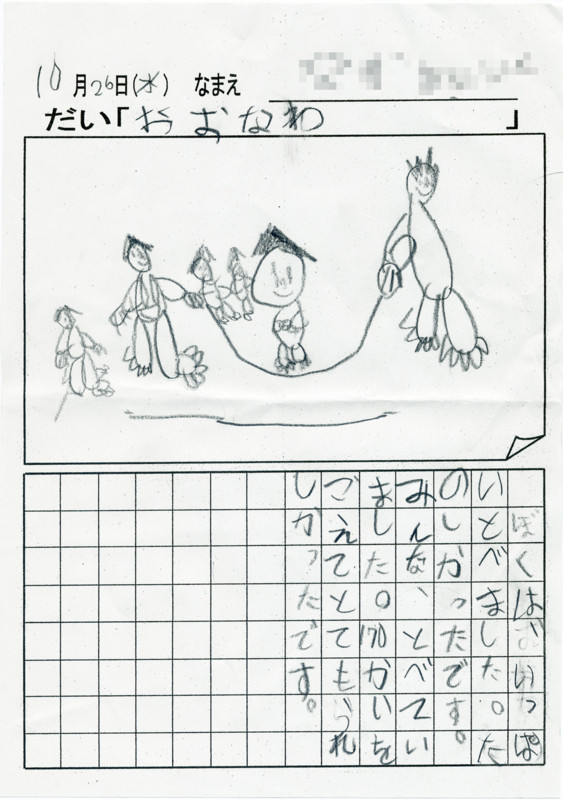 10月26日(水) なまえ
だい「おおなわ」
ぼくは、いっぱ
いとべました。た
のしかったです。
みんな、とべてい
ました。170かいを
ごえてとてもうれ
しかったです。